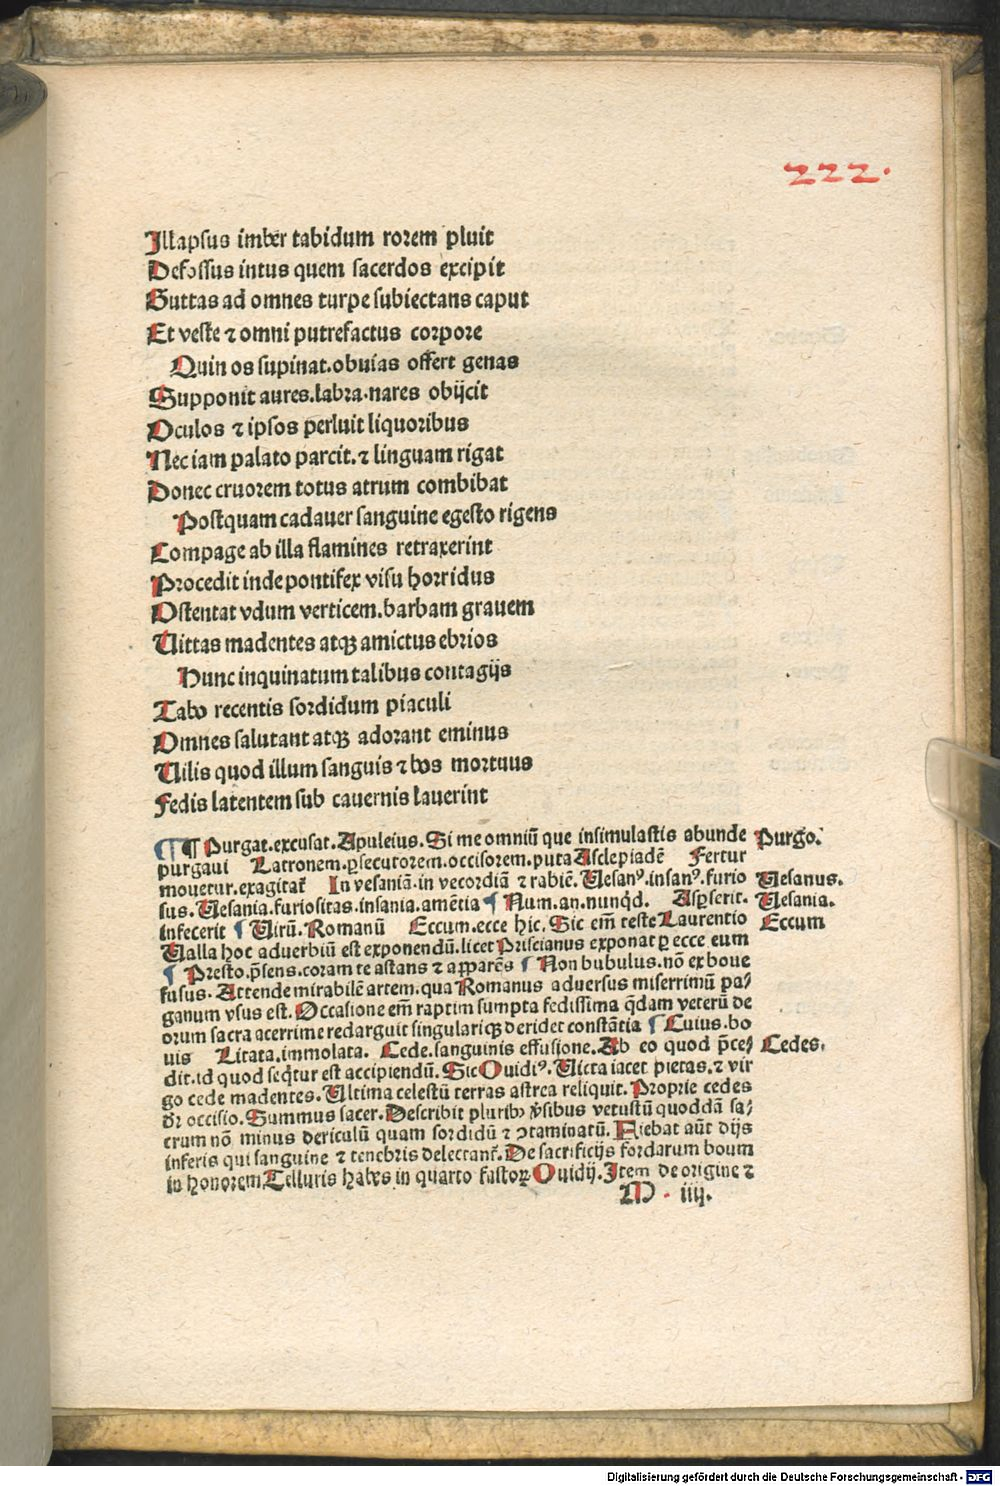 222.
Illapsus imber tabidum rorem pluit
Defossus intus quem sacerdos excipit
Guttas ad omnes turpe subiectans caput
Et veste ⁊ omni putrefactus corpore
Quin os supinat.obuias offert genas
Supponit aures.labra.nares obijcit
Oculos ⁊ ipsos perluit liquoribus
Nec iam palato parcit.⁊ linguam rigat
Donec cruorem totus atrum combibat
Postquam cadauer sanguine egesto rigens
Compage ab illa flamines retraxerint
Procedit inde pontifex visu horridus
Ostentat vdum verticem.barbam grauem
Uittas madentes atqꝫ amictus ebrios
Hunc inquinatum talibus contagijs
Tabo recentis sordidum piaculi
Omnes salutant atqꝫ adorant eminus
Uilis quod illum sanguis ⁊ bos mortuus
Fedis latentem sub cauernis lauerint
¶¶ Purgat.excusat.Apuleius.Si me omniū que insimulastis abunde Purgo.
purgaui Latronem.ꝑsecutorem.occisorem.puta Asclepiadē Fertur
mouetur.exagitat᷑ In vesaniā.in vecordiā ⁊ rabiē.Uesanꝰ.insanꝰ.furio Uesanus.
sus.Uesania.furiositas.insania.amētia ¶ Num.an.nunqd̄. Asꝑserit. Uesania.
infecerit ¶ Uirū.Romanū Eccum.ecce hic.Sic em̄ teste Laurentio Eccum
Ualla hoc aduerbiū est exponendū.licet Priscianus exponat ꝑ ecce eum
¶ Presto.p̄sens.coram te astans ⁊ apparēs ¶ Non bubulus.nō ex boue
fusus.Attende mirabilē artem.qua Romanus aduersus miserrimū pa⸗
ganum vsus est.Occasione em̄ raptim sumpta fedissima q̄dam veterū de
orum sacra acerrime redarguit singulariqꝫ deridet constātia ¶ Cuius.bo
uis Litata.immolata. Cede.sanguinis effusione.Ab eo quod p̄ce⸗ Cedes.
dit.id quod seqt᷑ur est accipiendū.Sic Ouidiꝰ.Uicta iacet pietas.⁊ vir
go cede madentes.Ultima celestū terras astrea reliquit.Proprie cedes
dr̄ occisio.Summus sacer.Describit pluribꝫ v̓sibus vetustū quoddā sa⸗
crum nō minus dericulū quam sordidū ⁊ ↄtaminatū.Fiebat aūt dijs
inferis qui sanguine ⁊ tenebris delectant᷑.De sacrificijs fordarum boum
in honorem Telluris habes in quarto fastoꝝ Ouidij.Item de origine ⁊
M . iiij.
Digitalisierung gefördert durch die Deutsche Forschungsgemeinschaft - DFG